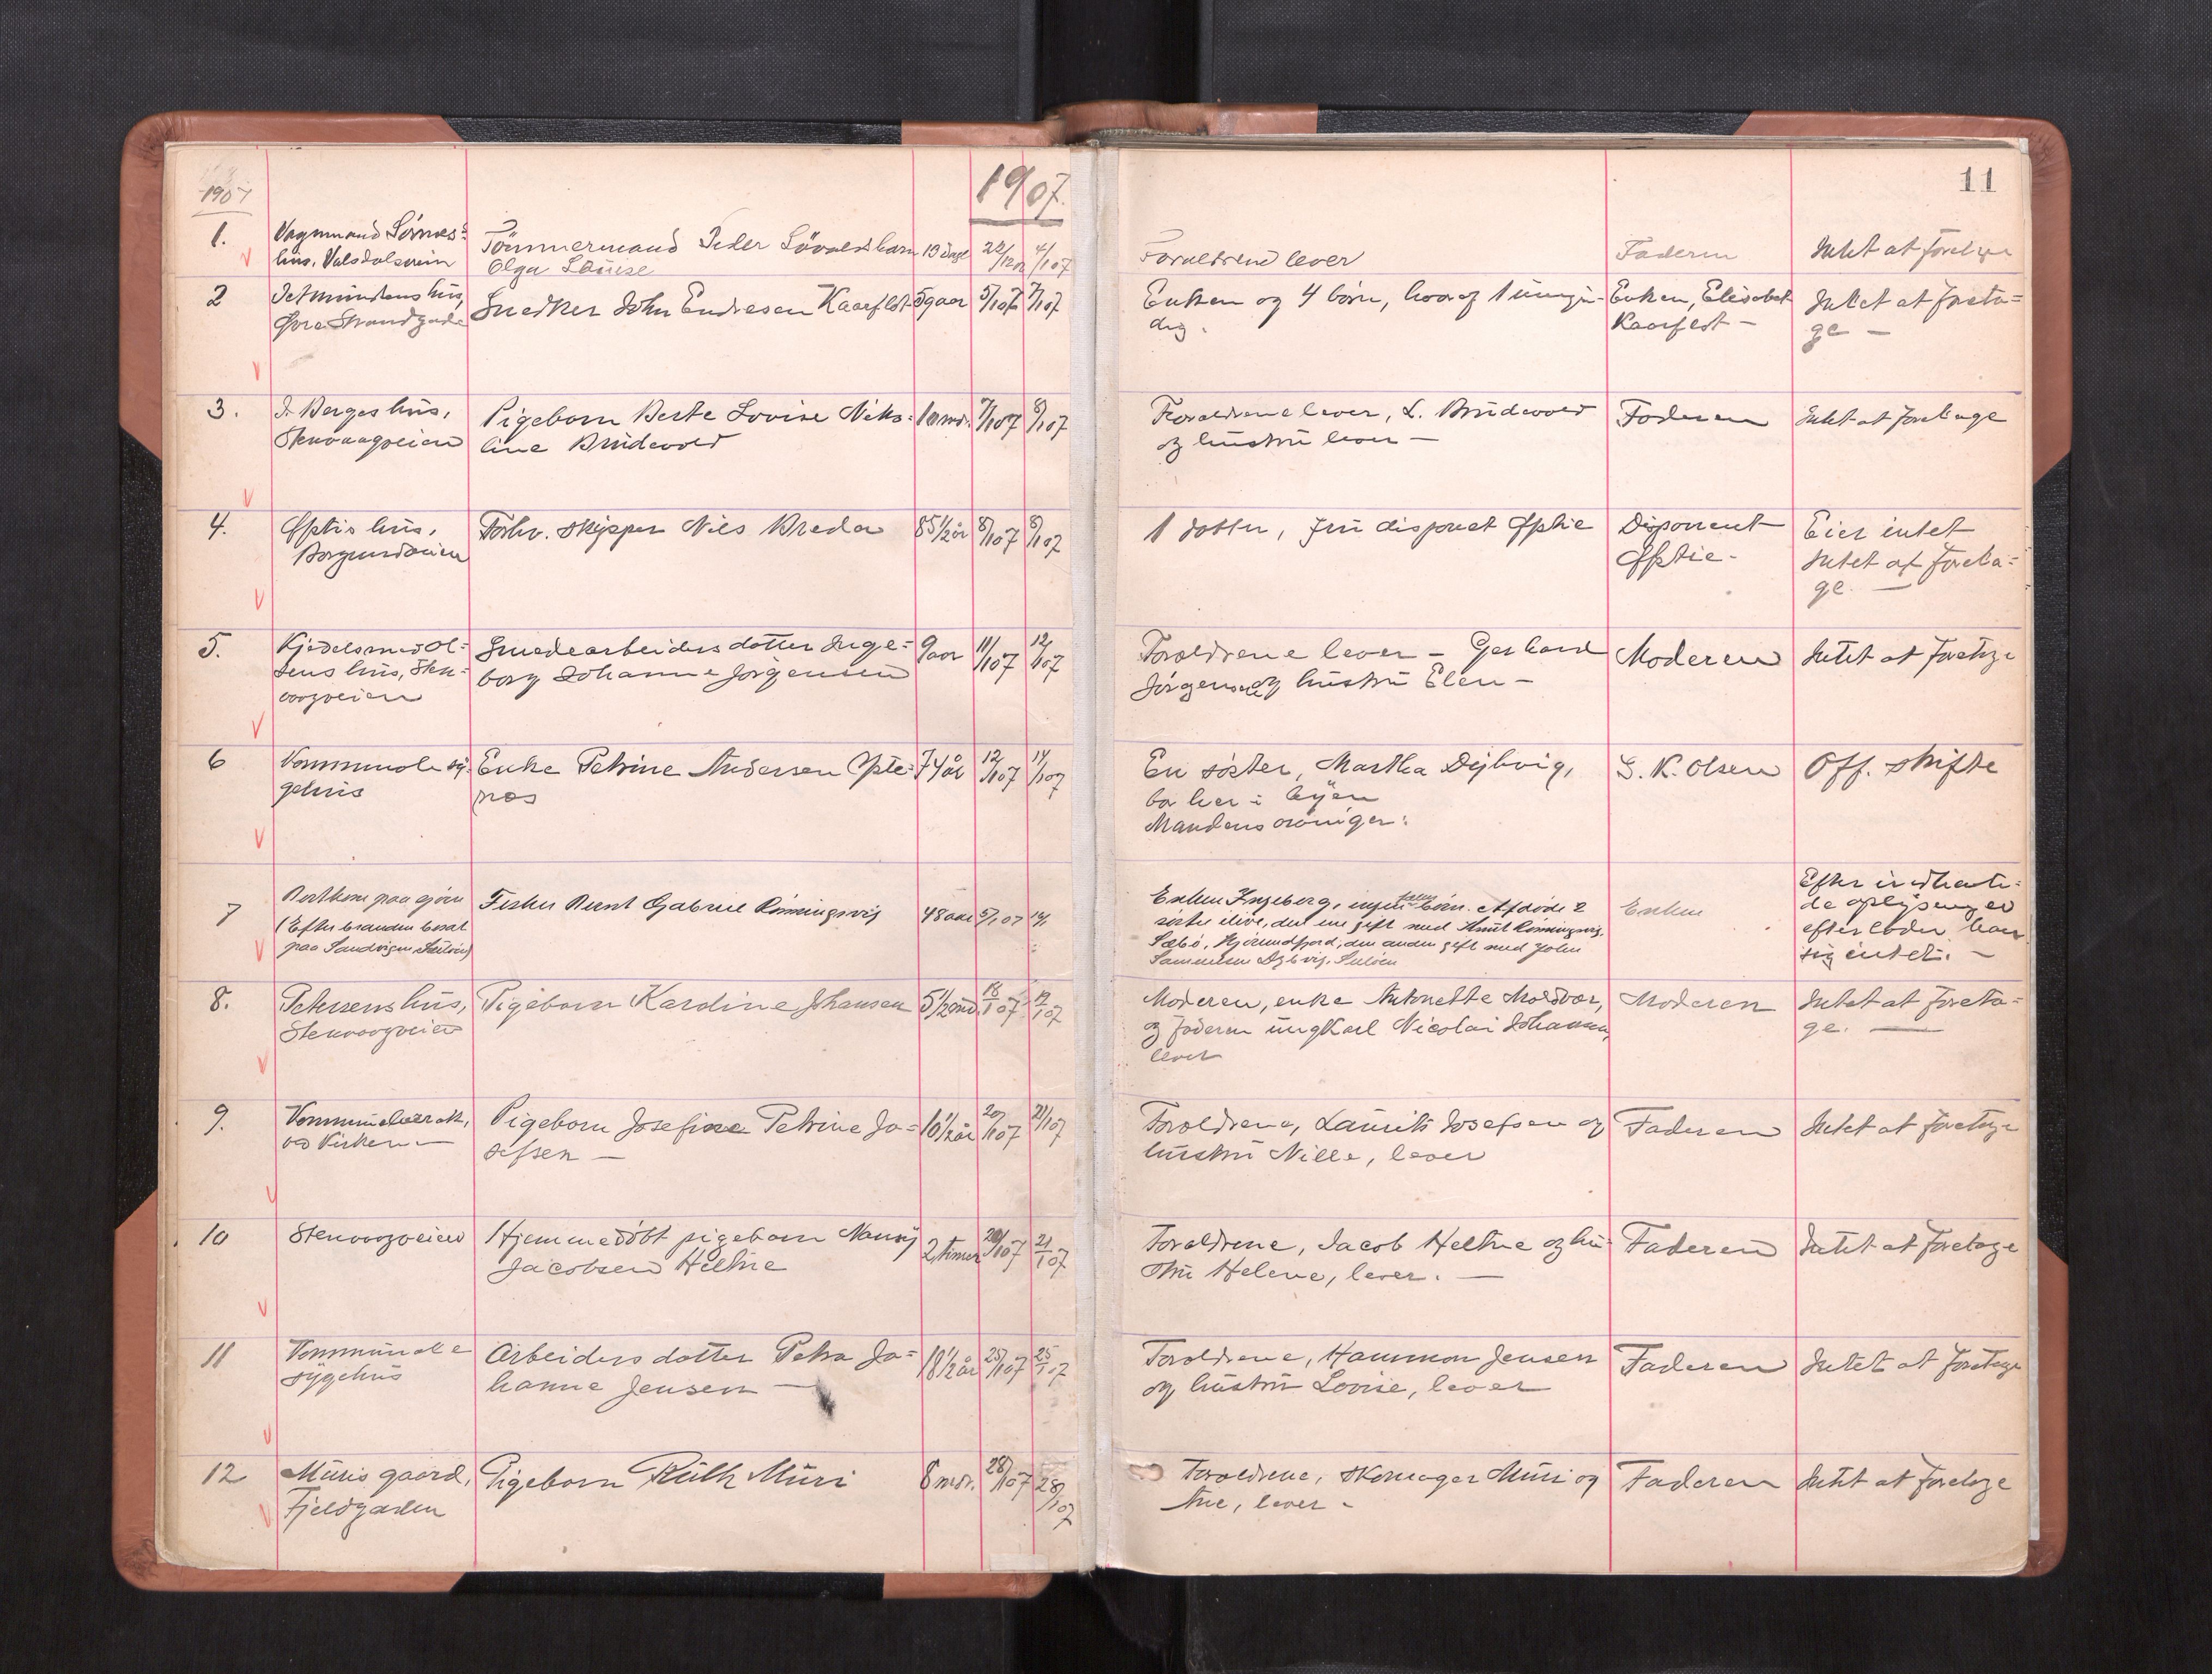 1907
1907.
11
1.
Vognmand Sørnes's
hus, Volsdalsveien
Tømmermand Peder Løvolds barn
Olga Louise
13 dage
22/12 06
4/1 07
Forældrene lever
Faderen
Intet at foretage
2
hus,
Øvre Strandgade
Snedker John Endresen Kaarflot
59 aar
5/1 07
7/1 07
Enken og 4 børn, hvoraf 1 umyn-
dig.
Enken, Elisabet
Kaarflot -
Intet at foreta=
ge -
3.
J. Berges hus,
Stenvaagveien
Pigebarn Berte Lovise Niko=
line Brudevold
10 mdr.
7/1 07
8/1 07
Forældrene lever, L. Brudevold
og hustru lever -
Faderen
Intet at foretage
4.
hus,
Borgundveien
Forhv. skipper Nils Breda
85 1/2 år
8/1 07
8/1 07
1 datter, fru disponent
Disponent
Eier intet
Intet at foreta=
ge. -
5.
Kjedelsmed Ol=
sens hus, Sten=
vaagveien
Smedearbeiders datter Inge=
borg Johanne Jørgensen
9 aar
11/1 07
12/1 07
Forældrene lever - Gerhard
Jørgensen og hustru Elen -
Moderen
Intet at foretage
6
Kommunale sy-
gehus
Enke Petrine Andersen
næs
74 år
12/1 07
14/1 07
En søster, Martha Dybvig,
bor her i byen
Mandens arvinger:
S. K. Olsen
Off. skifte
7
paa sjøen
(Efter branden bosat
paa Sandvigen, Suløen)
Fisker Bernt Gabriel Rønningsvig
48 aar
5/1 07
14/1
Enken Ingeberg, ingen børn. Afdøde 2
søstre ilive, den ene gift med Knut Rønningsvig,
Sæbø, Hjørundfjord, den anden gift med John
Samuelsen Dybvig, Suløen
Enken
Efter indhente=
de oplysninger
efterlader han
sig intet. -
8.
Petersens hus,
Stenvaagveien
Pigebarn Karoline Johansen
5 1/2 mnd.
18/1 07
19/1 07
Moderen, enke Antonette Moldvær,
og faderen ungk Karl Nicolai Johansen,
lever
Moderen
Intet at foreta=
ge. -
9.
Kommunebarak,
ved Kirken -
Pigebarn Josefine Petrine Jo=
sefsen -
10 1/2 år
20/1 07
21/1 07
Forældrene, Laurits Josefsen og
hustru Nille, lever
Faderen
Intet at foretage
10
Stenvaagveien
Hjemmedøbt pigebarn Nanny
Jacobsen Heltne
2 timer
20/1 07
21/1 07
Forældrene, Jacob Heltne og hu-
stru Helene, lever. -
Faderen
Intet at foretage
11
Kommunale
sygehus
Arbeiders datter Petra Jo=
hanne Jensen -
18 1/2 år
25/1 07
25/1 07
Forældrene, Hammon Jensen
og hustru Lovise, lever
Faderen
Intet at foretage
12
Muris gaard,
Fjeldgaden
Pigebarn Ruth Muri
8 mdr.
28/1 07
28/1 07
Forældrene, skomager Muri og
frue, lever -
Faderen
Intet at foretage